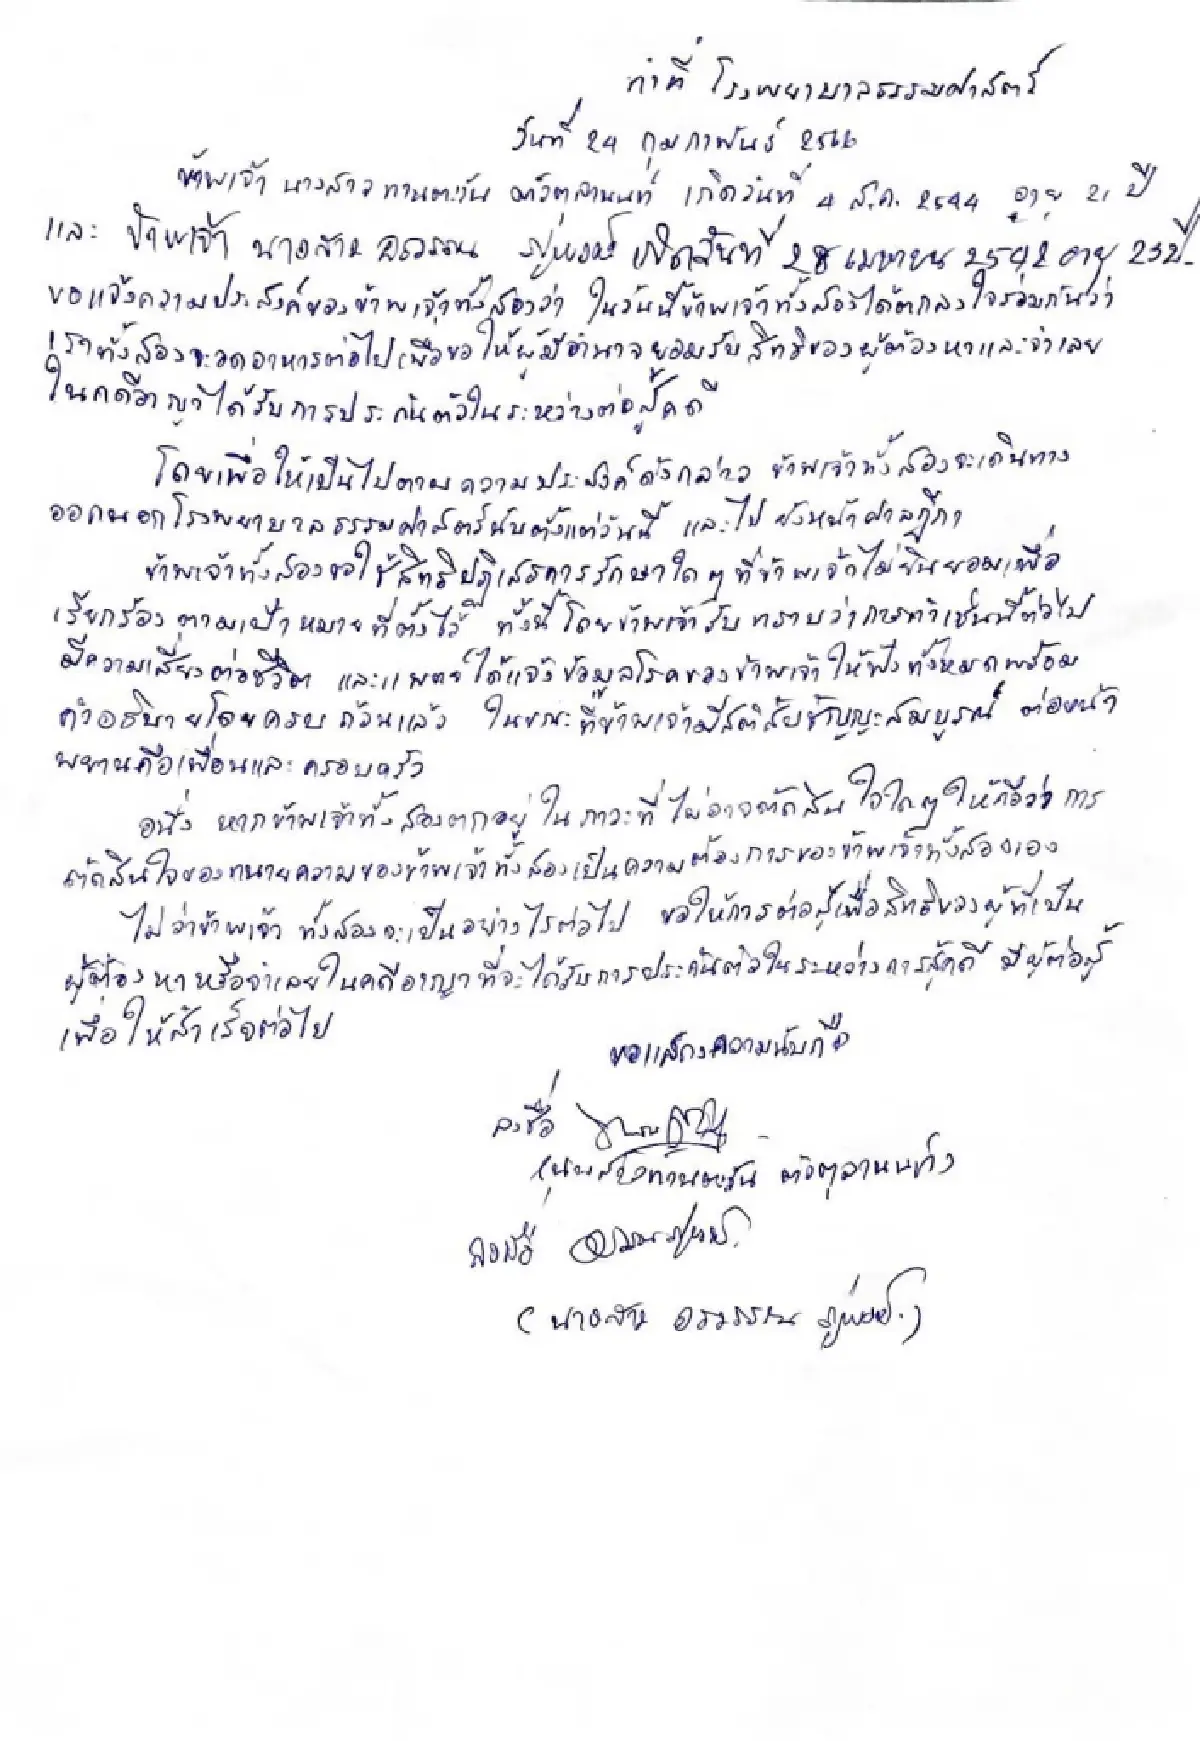 ทำที่ โรงพยาบาลธรรมศาสตร์
วันที่ 24 กุมภาพันธ์ 2566
ข้าพเจ้า นางสาว ทานตะวัน ตัวตุลานนท์ เกิดวันที่ 4 ส.ค. 2544 อายุ 21 ปี
และ ข้าพเจ้า นางสาว อรวรรณ ภู่พงษ์ เกิดวันที่ 28 เมษายน 2542 อายุ 23 ปี
ขอแจ้งความประสงค์ของข้าพเจ้าทั้งสองว่า ในวันนี้ข้าพเจ้าทั้งสองได้ตกลงใจร่วมกันว่า
เราทั้งสองจะอดอาหารต่อไปเพื่อขอให้ผู้มีอำนาจยอมรับสิทธิของผู้ต้องหาและจำเลย
ในคดีอาญาได้รับการประกันตัวในระหว่างต่อสู้คดี
โดยเพื่อให้เป็นไปตามความประสงค์ดังกล่าว ข้าพเจ้าทั้งสองจะเดินทาง
ออกนอกโรงพยาบาลธรรมศาสตร์นับตั้งแต่วันนี้ และไปยังหน้าศาลฎีกา
ข้าพเจ้าทั้งสองขอใช้สิทธิปฏิเสธการรักษาใดๆ ที่ข้าพเจ้าไม่ยินยอมเพื่อ
เรียกร้องตามเป้าหมายที่ตั้งไว้ ทั้งนี้โดยข้าพเจ้ารับทราบว่าการทำเช่นนี้ต่อไป
มีความเสี่ยงต่อชีวิต และแพทย์ได้แจ้งข้อมูลโรคของข้าพเจ้าให้ฟังทั้งหมดพร้อม
คำอธิบายโดยครบถ้วนแล้ว ในขณะที่ข้าพเจ้ามีสติสัมปชัญญะสมบูรณ์ ต่อหน้า
พยานคือเพื่อนและครอบครัว
อนึ่ง หากข้าพเจ้าทั้งสองตกอยู่ในภาวะที่ไม่อาจตัดสินใจใดๆ ให้ถือว่าการ
ตัดสินใจของทนายความของข้าพเจ้าทั้งสองเป็นความต้องการของข้าพเจ้าทั้งสองเอง
ไม่ว่าข้าพเจ้าทั้งสองจะเป็นอย่างไรต่อไป ขอให้การต่อสู้เพื่อสิทธิของผู้ที่เป็น
ผู้ต้องหาหรือจำเลยในคดีอาญาที่จะได้รับการประกันตัวในระหว่างการสู้คดี มีผู้ต่อสู้
เพื่อให้สำเร็จต่อไป
ขอแสดงความนับถือ
ลงชื่อ
(นางสาวทานตะวัน ตัวตุลานนท์)
ลงชื่อ
(นางสาว อรวรรณ ภู่พงษ์)